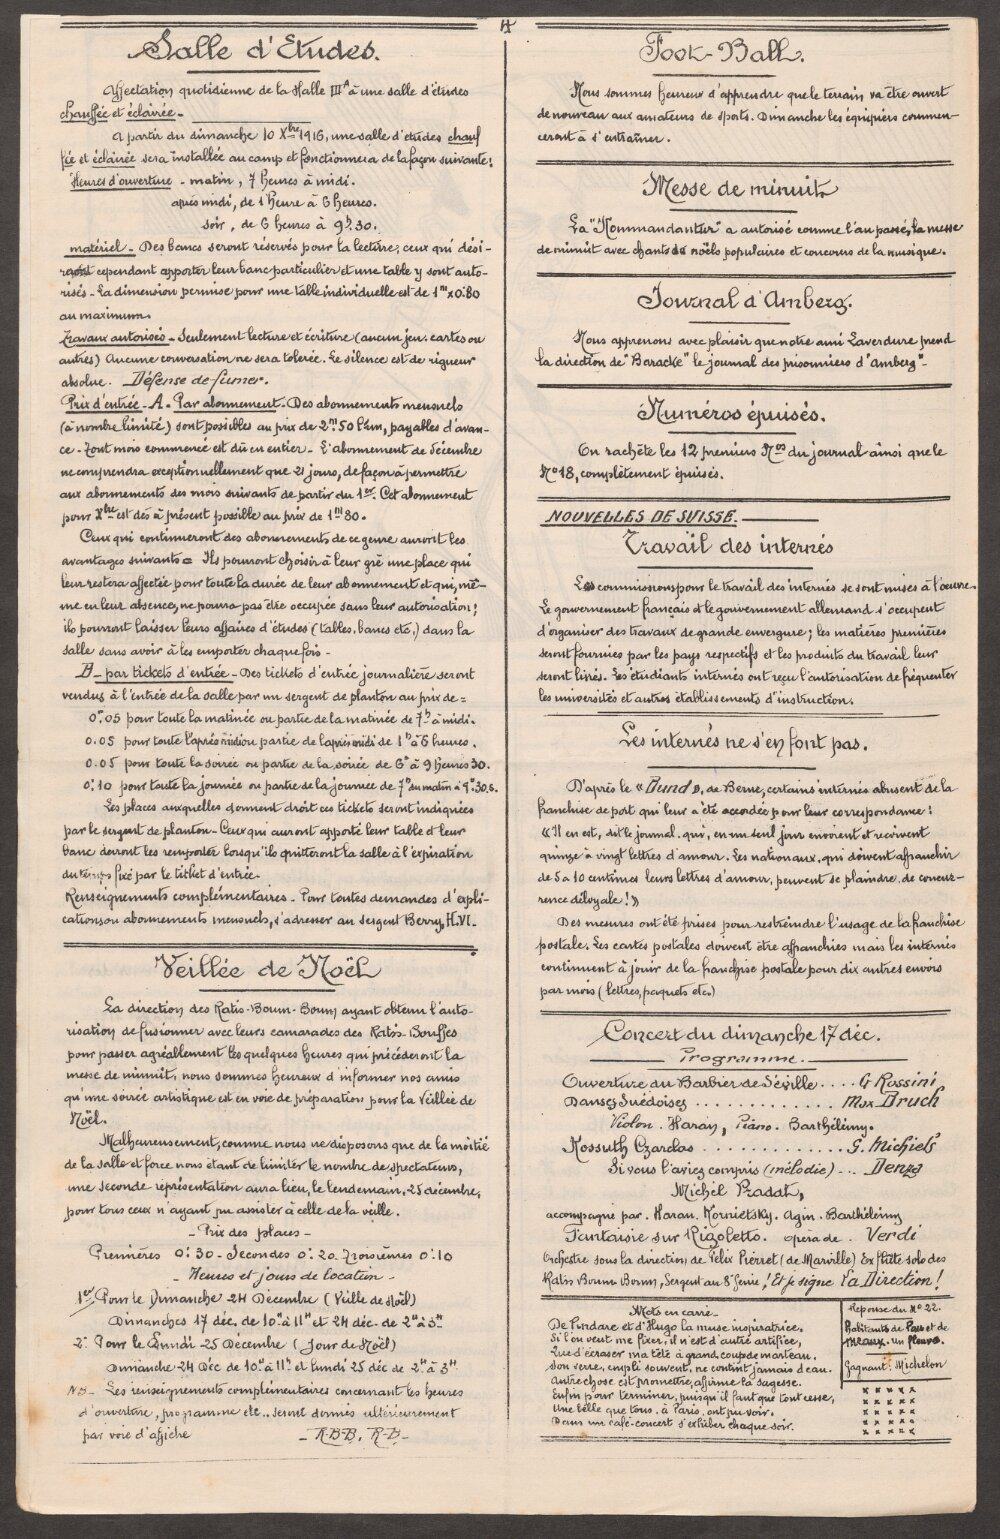 4
Salle d'Etudes.
Affectation quotidienne de la Halle III^A à une salle d'études
chauffée et éclairée.
A partir du dimanche 10 X^bre 1916, une salle d'etudes chauf
fée et éclairée sera installée au camp et fonctionnera de la façon suivante:
Heures d'ouverture - matin, 7 heures à midi.
après midi, de 1 heure à 6 heures.
soir, de 6 heures à 9^h.30.
matériel - Des bancs seront réservés pour la lecture; ceux qui dési-
rent cependant apporter leur banc particulier et une table y sont auto-
risés - La dimension permise pour une table individuelle est de 1^m x 0.80
au maximum.
Travaux autorisés - Seulement lecture et écriture (aucun jeu. cartes ou
autres) Aucune conversation ne sera tolerée. Le silence est de rigueur
absolue. Défense de fumer.
Prix d'entrée - A. Par abonnement - Des abonnements mensuels
(à nombre limité) sont possibles au prix de 2^m.50 l'un, payables d'avan-
ce - Tout mois commencé est dû en entier - L'abonnement de décembre
ne comprendra exceptionnellement que 21 jours, de façon à permettre
aux abonnements des mois suivants de partir du 1^er. Cet abonnement
pour X^bre est dès à présent possible au prix de 1^m80.
Ceux qui continueront des abonnements de ce genre auront les
avantages suivants = Ils pourront choisir à leur gré une place qui
leur restera affectée pour toute la durée de leur abonnement et qui, mê-
me en leur absence, ne pourra pas être occupée sans leur autorisation;
ils pourront laisser leurs affaires d'études (tables, bancs etc.) dans la
salle sans avoir à les emporter chaque fois -
B - par tickets d'entrée - Des tickets d'entrée journalière seront
vendus à l'entrée de la salle par un sergent de planton au prix de =
0.05 pour toute la matinée ou partie de la matinée de 7^h à midi.
0.05 pour toute l'après midi ou partie de l'après midi de 1^h à 6 heures.
0.05 pour toute la soirée ou partie de la soirée de 6^h à 9 heures 30.
0.10 pour toute la journée ou partie de la journée de 7^h du matin à 9^h.30.s.
Les places auxquelles donnent droit ces tickets seront indiquées
par le sergent de planton - Ceux qui auront apporté leur table et leur
banc devront les remporter lorsqu'ils quitteront la salle à l'expiration
du temps fixé par le ticket d'entrée.
Renseignements complémentaires - Pour toutes demandes d'expli-
cations ou abonnements mensuels, s'adresser au sergent Berry, H.VI.
Veillée de Noël
La direction des Ratis-Boum-Boum ayant obtenu l'auto-
risation de fusionner avec leurs camarades des Ratis-Bouffes
pour passer agréablement les quelques heures qui précéderont la
messe de minuit, nous sommes heureux d'informer nos amis
qu'une soirée artistique est en voie de préparation pour la Veillée de
Noël.
Malheureusement, comme nous ne disposons que de la moitié
de la salle et force nous étant de limiter le nombre de spectateurs,
une seconde représentation aura lieu, le lendemain, 25 décembre,
pour tous ceux n'ayant pu assister à celle de la veille.
- Prix des places -
Premières 0.30 - Secondes 0.20. Troisièmes 0.10
- Heures et jours de location -
1^er/ Pour le Dimanche 24 Décembre (Veille de Noël)
Dimanches 17 déc. de 10^H à 11^H et 24 déc. de 2^H à 3^H
2^o Pour le Lundi 25 Décembre (Jour de Noël)
Dimanche 24 Déc de 10^H à 11^H et lundi 25 déc de 2^H à 3^H
NB - Les renseignements complémentaires concernant les heures
d'ouverture, programme etc.. seront donnés ultérieurement
par voie d'affiche - R-B-B, R-B -
Foot-Ball.
Nous sommes heureux d'apprendre que le terrain va être ouvert
de nouveau aux amateurs de sports. Dimanche les équipiers commen-
ceront à s'entraîner.
Messe de minuit
La "Kommandantur" a autorisé comme l'an passé, la messe
de minuit avec chants de noëls populaires et concours de la musique.
Journal d'Amberg.
Nous apprenons avec plaisir que notre ami Laverdure prend
la direction de "Baracke" le journal des prisonniers d'Amberg".
Numéros épuisés.
On rachète les 12 premiers N^os du journal ainsi que le
N° 18, complètement épuisés.
NOUVELLES DE SUISSE.
Travail des internés
Les commissions pour le travail des internés se sont mises à l'oeuvre.
Le gouvernement français et le gouvernement allemand s'occupent
d'organiser des travaux de grande envergure; les matières premières
seront fournies par les pays respectifs et les produits du travail leur
seront livrés. Les étudiants internés ont reçu l'autorisation de fréquenter
les universités et autres établissements d'instruction.
Les internés ne s'en font pas.
D'après le «Bund», de Berne, certains internés abusent de la
franchise de port qui leur a été accordée pour leur correspondance:
«Il en est, dit le journal, qui, en un seul jour envoient et reçoivent
quinze à vingt lettres d'amour. Les nationaux, qui doivent affranchir
de 5 à 10 centimes leurs lettres d'amour, peuvent se plaindre de concur-
rence déloyale!»
Des mesures ont été prises pour restreindre l'usage de la franchise
postale. Les cartes postales doivent être affranchies mais les internés
continuent à jouir de la franchise postale pour dix autres envois
par mois (lettres, paquets etc.)
Concert du dimanche 17 déc.
Programme.
Ouverture du Barbier de Séville .... G Rossini
Danses Suédoises ............. Max Bruch
Violon. Haran, Piano. Barthélémy.
Kossuth Czardas ............. G. Michiels
Si vous l'aviez compris (mélodie) ... Denza
Michel Pradat,
accompagné par. Haran. Kornietsky. Agin. Barthélémy
Fantaisie sur Rigoletto. opéra de. Verdi
Orchestre sous la direction de Félix Pierret (de Marville) Ex flûte solo des
Ratis Boum Boum, Sergent au 8^e Génie, ! Et je signe La Direction!
Mots en carré -
De Pindare et d'Hugo la muse inspiratrice.
Si l'on veut me fixer, il n'est d'autre artifice,
Que d'écraser ma tête à grand coup de marteau.
Son verre, empli souvent, ne contint jamais d'eau.
Autre chose est promettre, affirme la sagesse.
Enfin pour terminer, puisqu'il faut que tout cesse,
Une belle que tous, à Paris, ont pu voir,
Dans un café-concert s'exhiber chaque soir.
Réponse du N° 22.
Habitants de Pau et de
Meaux. un fleuve.
Gagnant: Michelon
× × × × ×
× × × × ×
× × × × ×
× × × × ×
× × × × ×